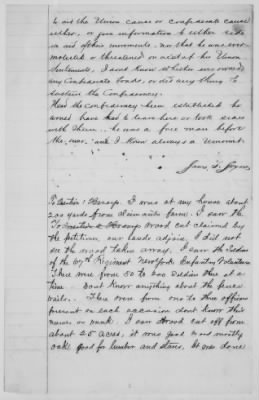 to aid the Union cause or confederate cause
either, or give information to either side
in aid of their movements, nor that he was ever
molested or threatened on account of his Union
Sentiments, I dont know whether he owned
any Confederate bonds, or did any thing to
sustain the Confederacy.
Had the confederacy been established he
would have had to leave here or took sides
with them. he was a free man before
the war, and I know always a Unionist.
I was at my house about
200 yards from claimants farm. I saw the
wood cut claimed by
the petition, our lands adjoin, I did not
see the wood taken away. I saw the Soldiers
of the 67th Regiment New York Infantry Volunteers
there were from 50 to 200 Soldiers there at a
time. Dont know anything about the fence
rails. There were from one to three officers
present on each occasion dont know their
names or rank. I saw Wood cut off from
about 25 acres, it was good wood mostly
oak good for lumber and staves. It was done